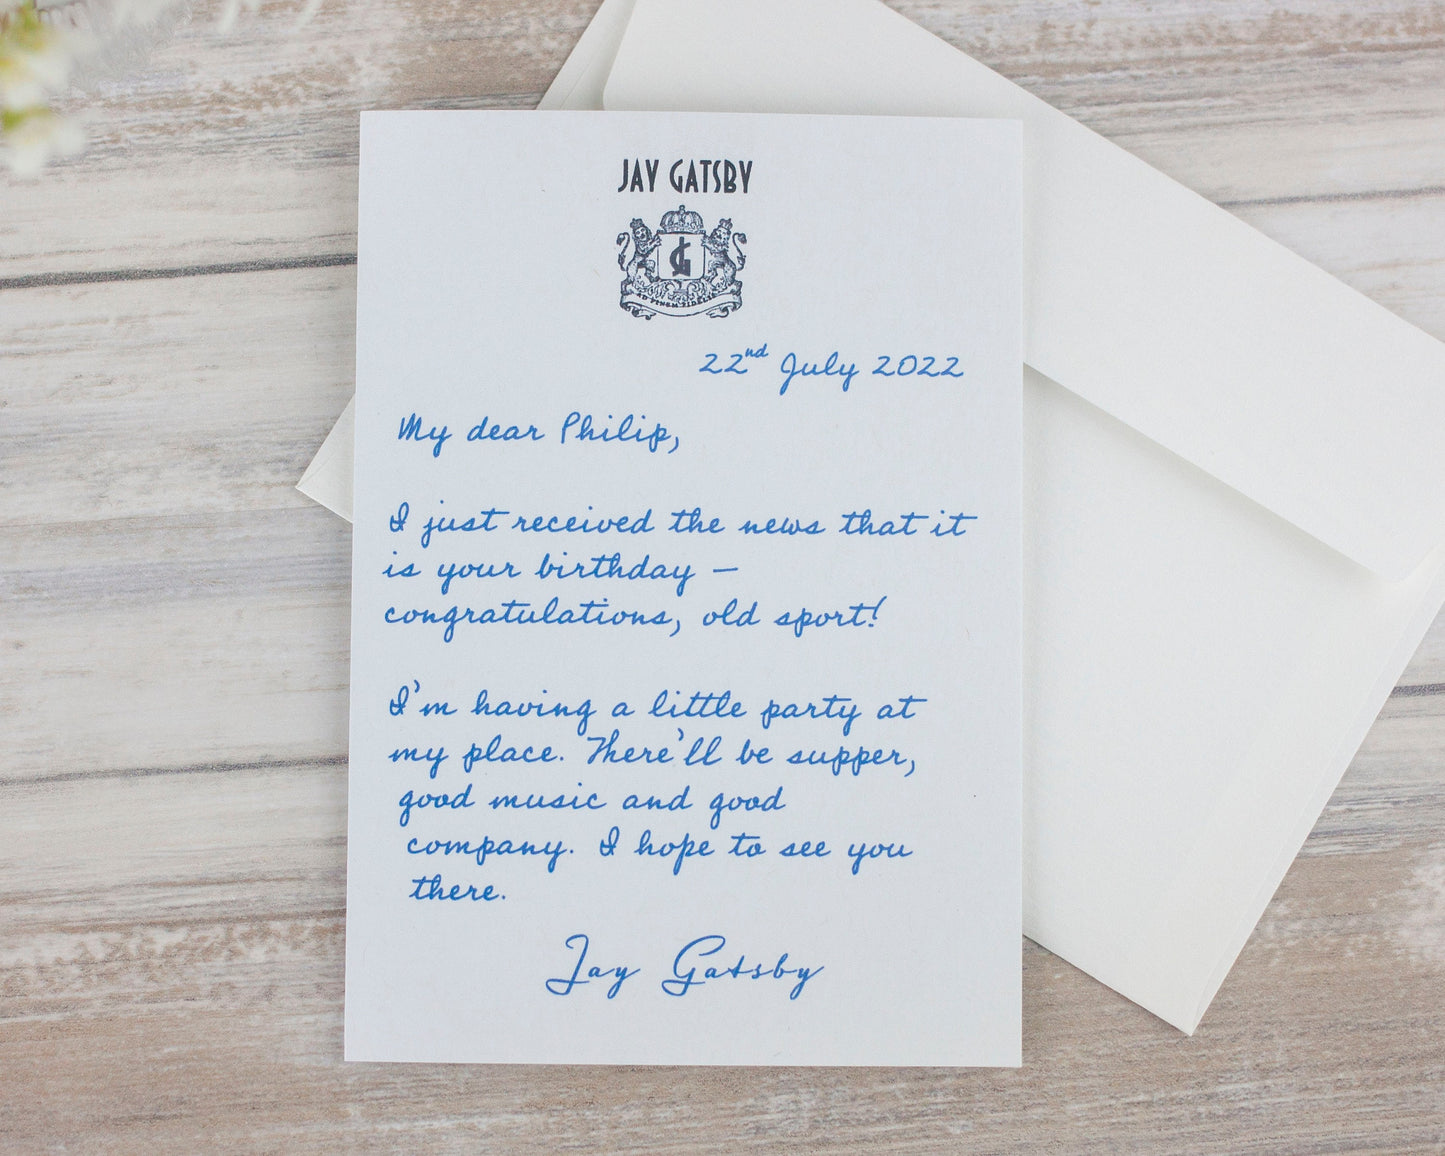 JAY GATSBY
JG
AD FINEM FIDELIS
22nd July 2022
My dear Philip,
I just received the news that it
is your birthday –
congratulations, old sport!
I'm having a little party at
my place. There'll be supper,
good music and good
company. I hope to see you
there.
Jay Gatsby